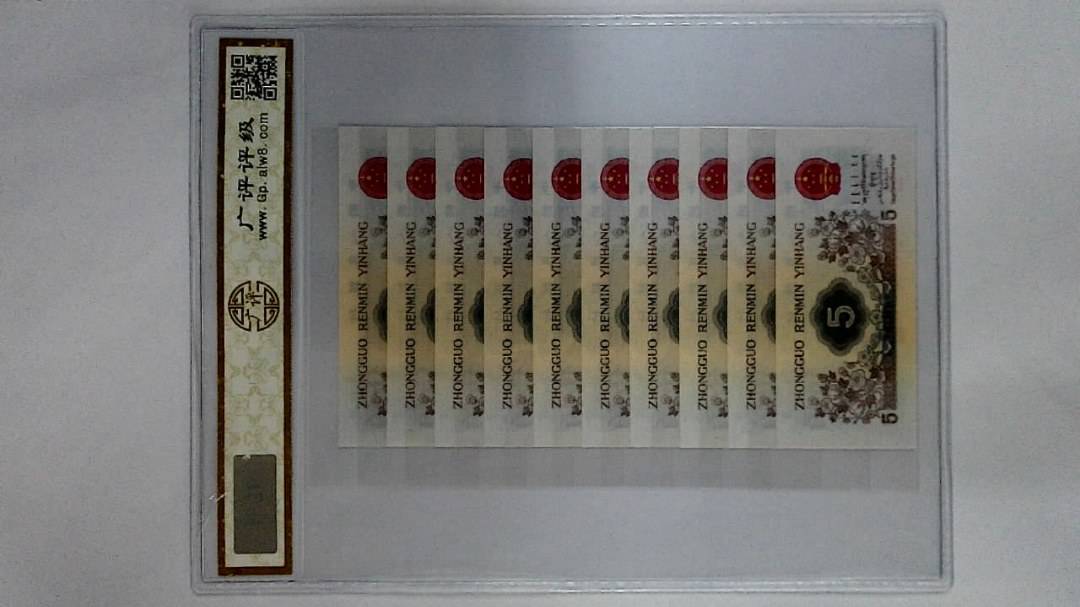 广评评级
www.Gp.alw8.com
广评
ZHONGGUO RENMIN YINHANG
ZHONGGUO RENMIN YINHANG
ZHONGGUO RENMIN YINHANG
ZHONGGUO RENMIN YINHANG
ZHONGGUO RENMIN YINHANG
ZHONGGUO RENMIN YINHANG
ZHONGGUO RENMIN YINHANG
ZHONGGUO RENMIN YINHANG
ZHONGGUO RENMIN YINHANG
ZHONGGUO RENMIN YINHANG
5
5
5